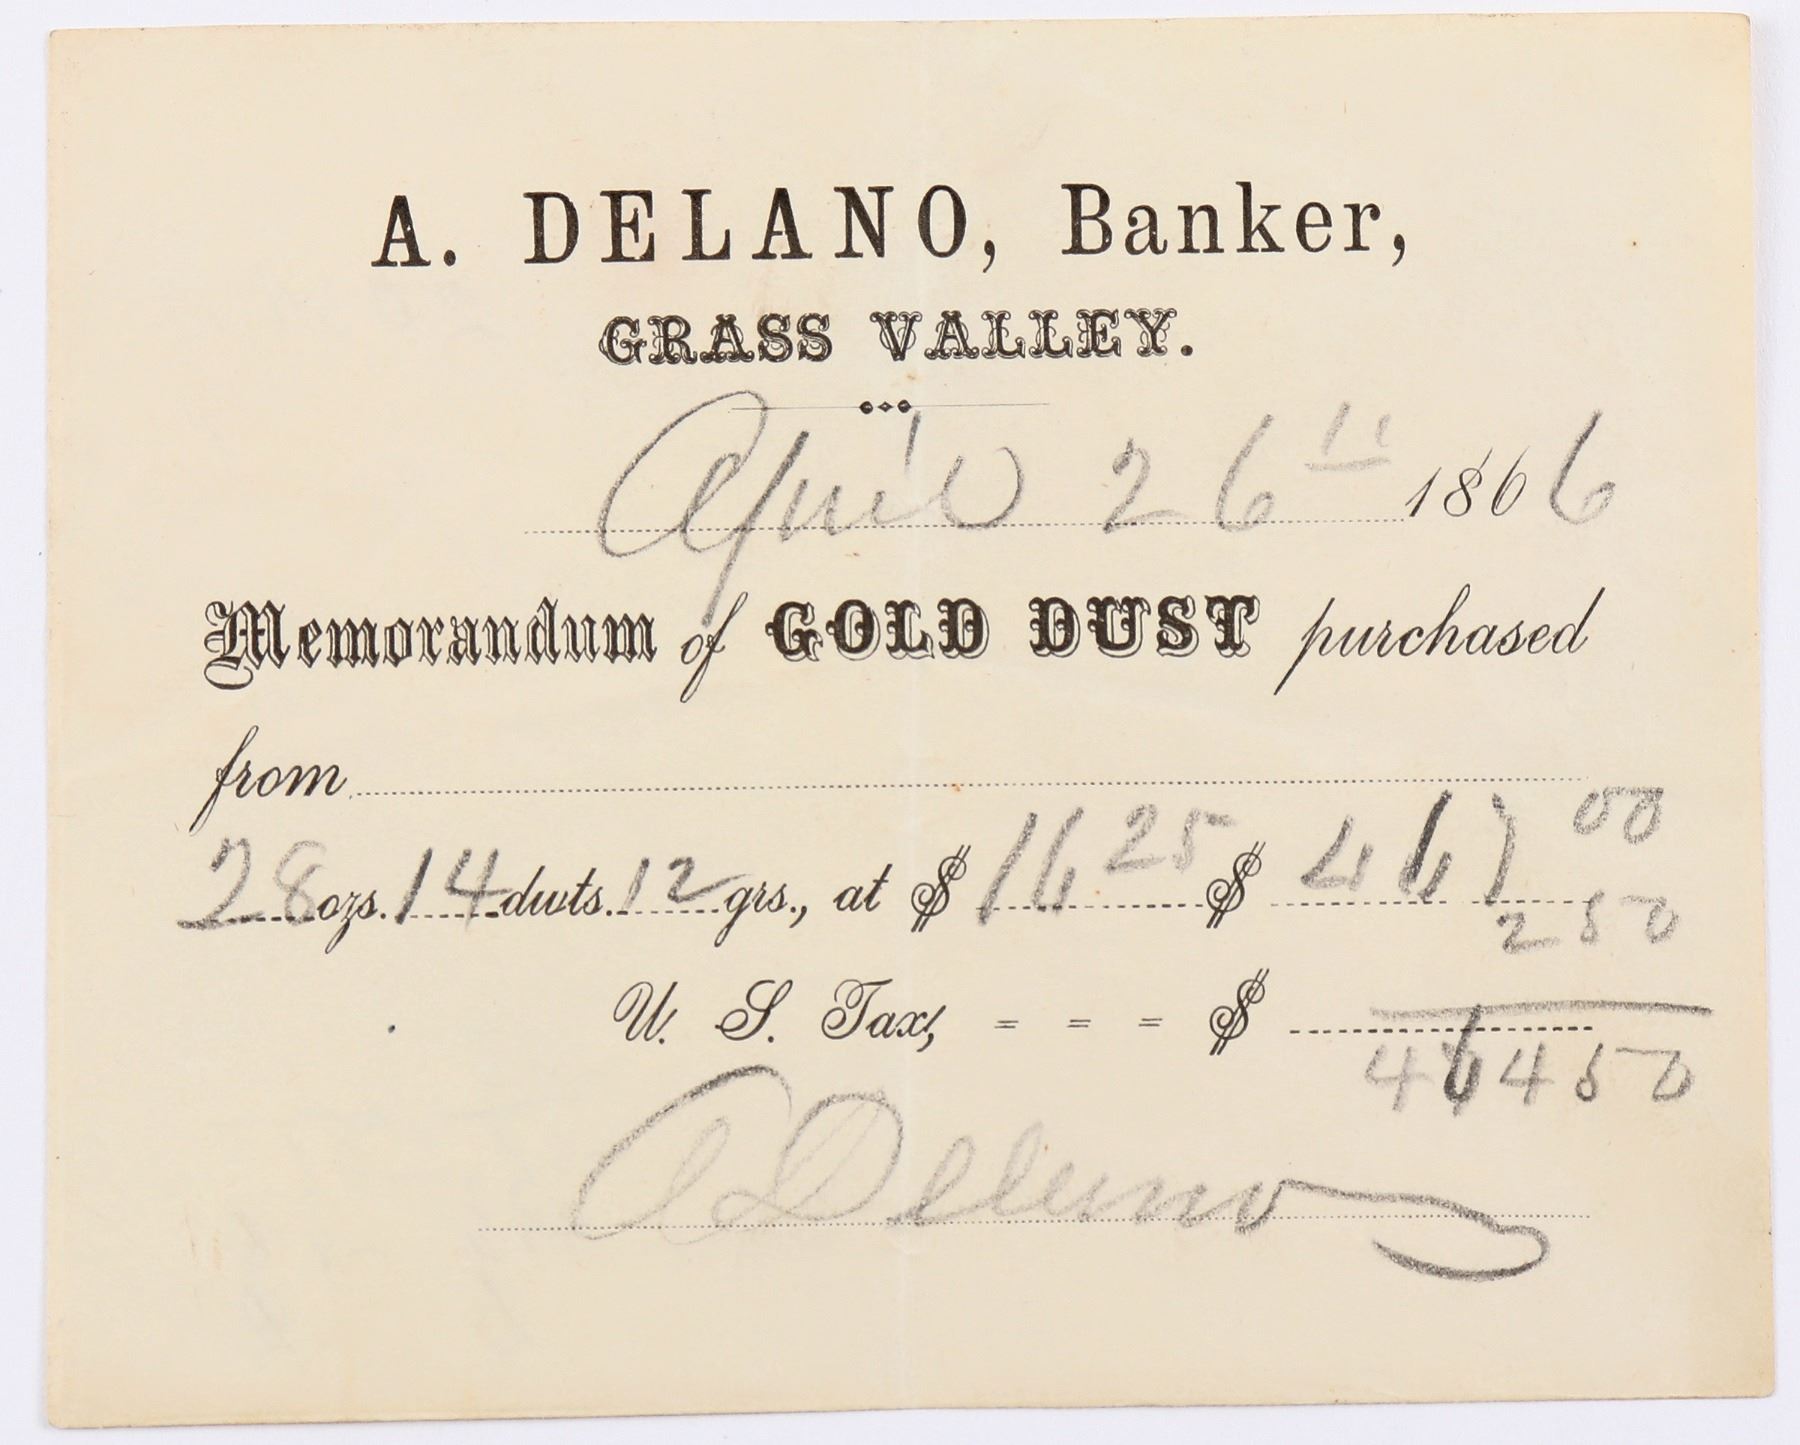 A. DELANO, Banker,
GRASS VALLEY.
April 26th 1866
Memorandum of GOLD DUST purchased
from
28 ozs. 14 dwts. 12 grs., at $ 16 25 $ 467 00
2 50
U. S. Tax, = = = $
464 50
A Delano